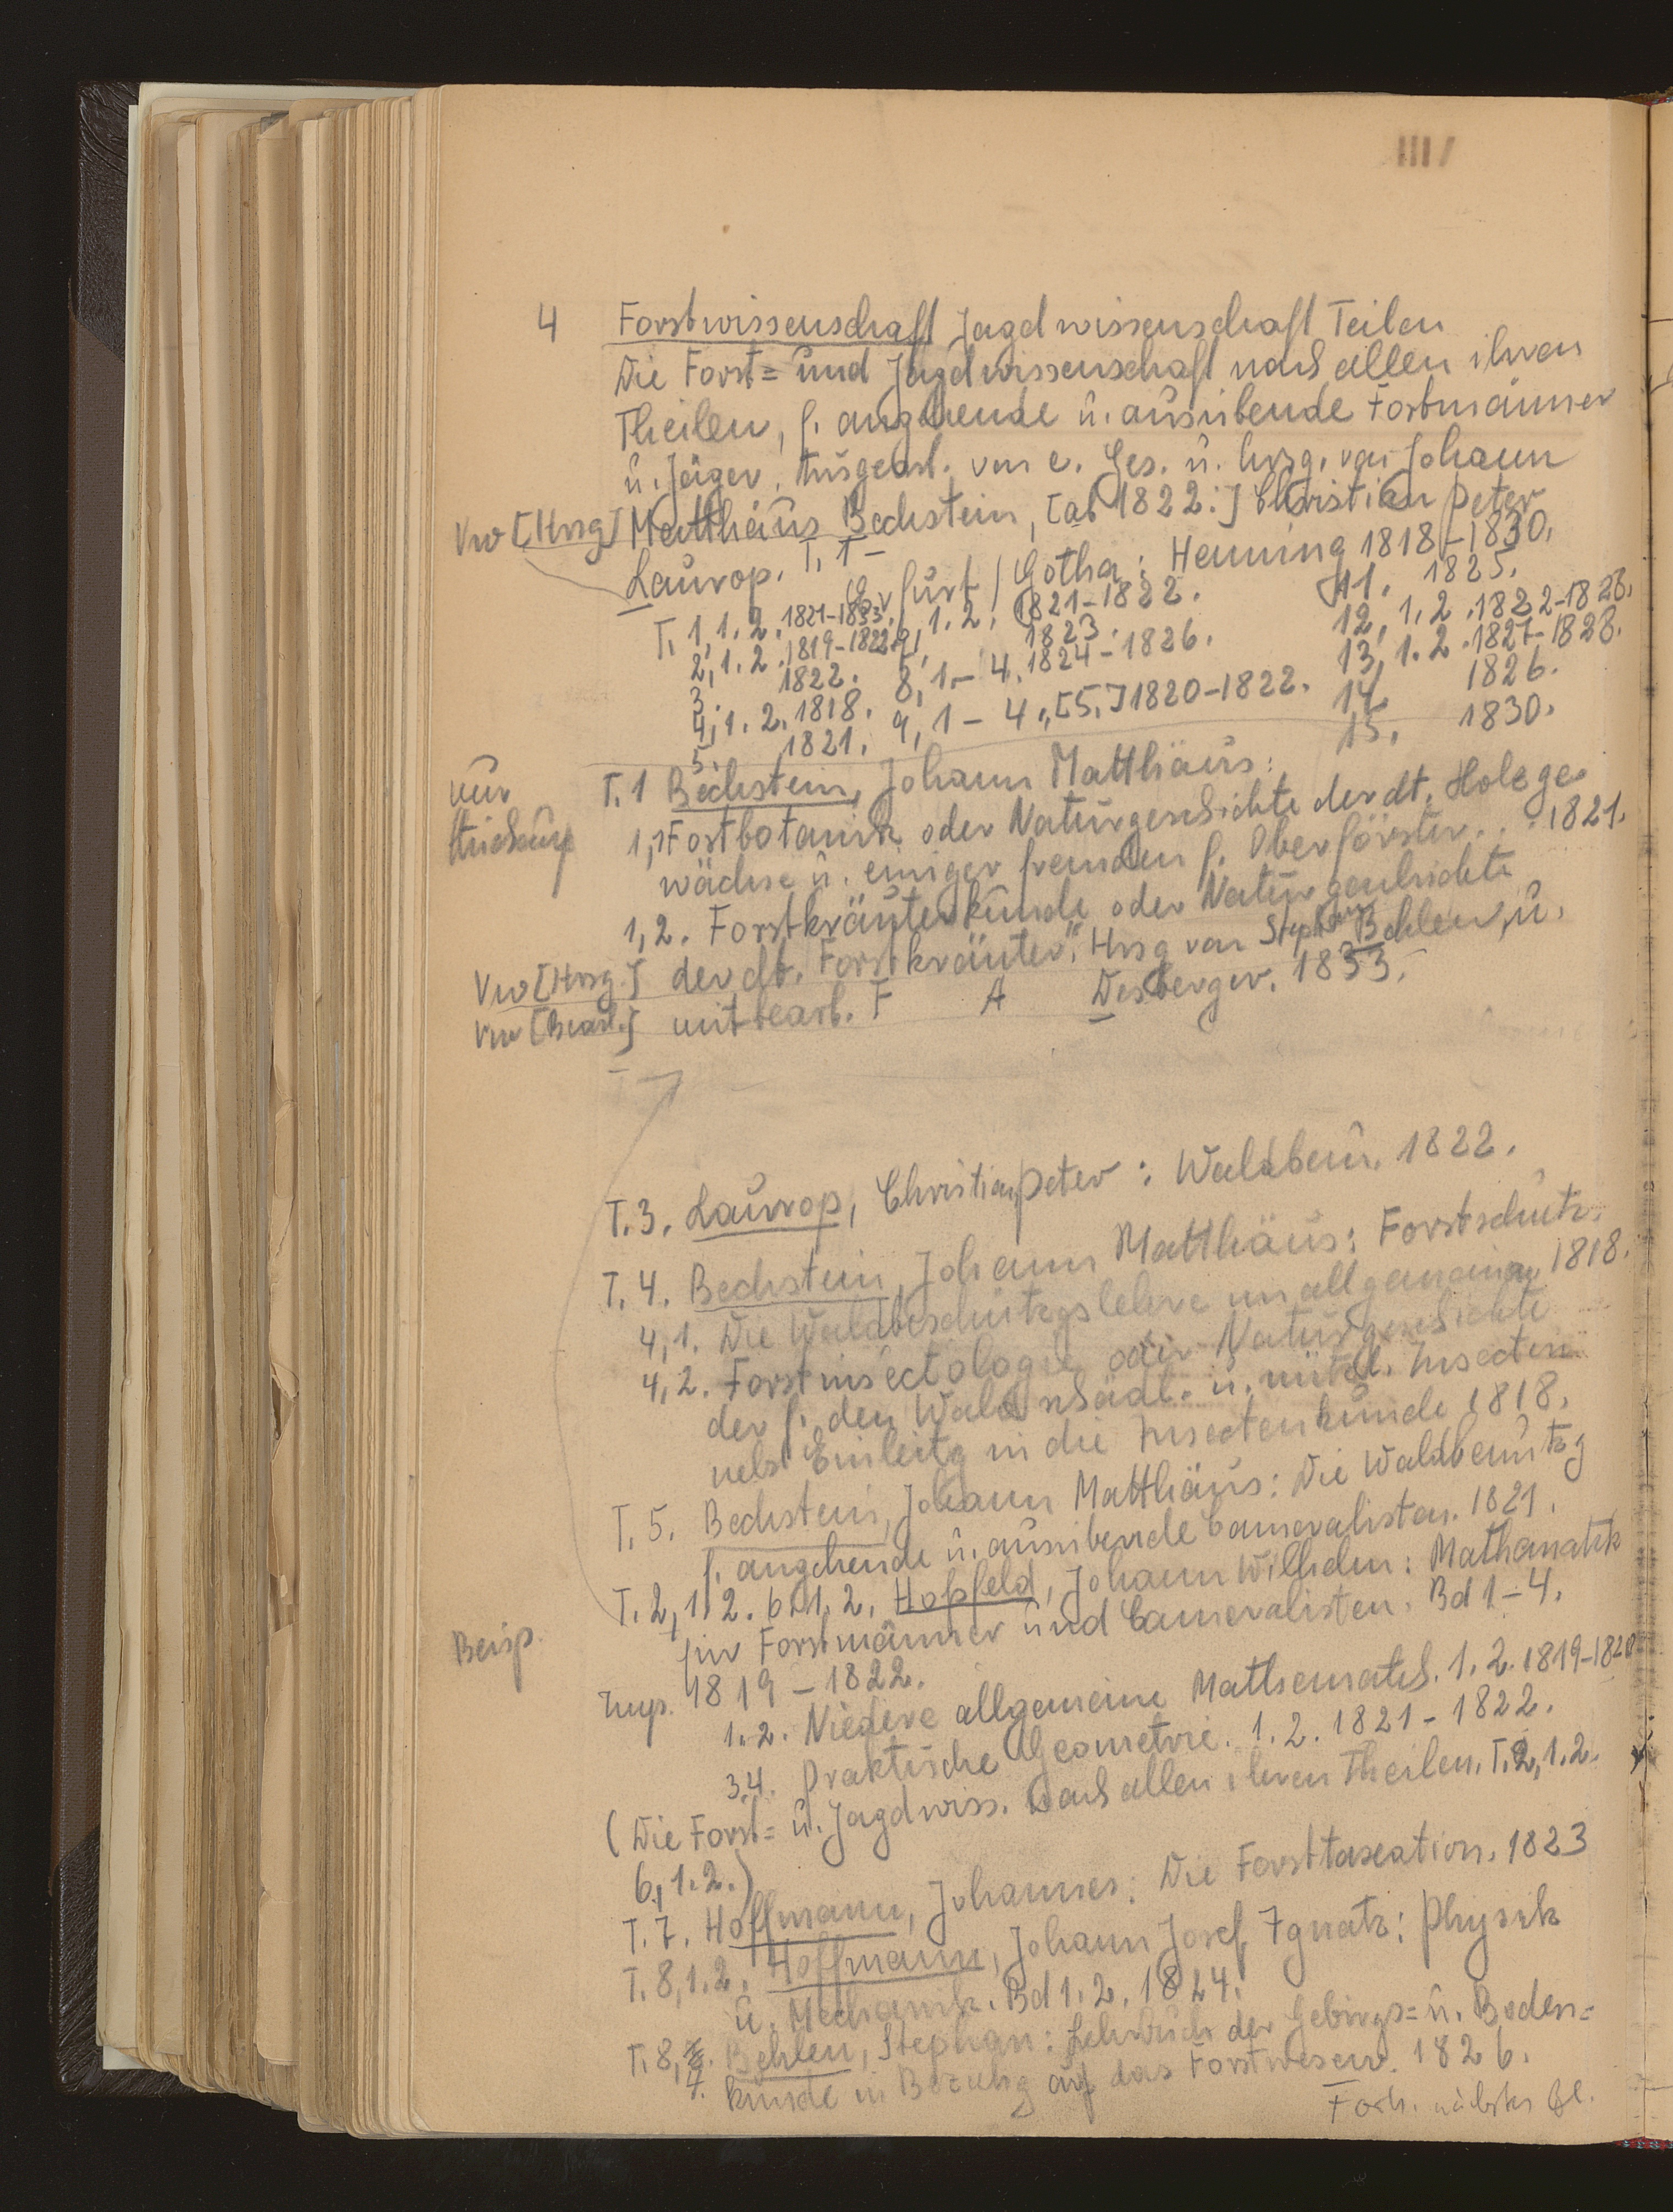 VIII
4 Forstwissenschaft Jagdwissenschaft Teilen
Die Forst= und Jagdwissenschaft nach allen ihren
Theilen, f. angehende u. ausübende Forstmänner
u. Jäger. Ausgearb. von e. Ges. u. hrsg. von Johann
Vw [Hrsg] Matthäus Bechstein, [ab 1822:] Christian Peter
Laurop. T. 1 –
(Erfurt / Gotha: Henning 1818–1830.
T. 1,1.2. 1821–1833. 6, 1.2. 1821–1822. 11. 1825.
2,1.2. 1819–1822. 7, 1823. 12, 1.2. 1822–1828.
3. 1822. 8, 1.– 4. 1824–1826. 13, 1.2. 1827–1828.
4,1.2. 1818. 9, 1 – 4., [5.] 1820–1822. 14. 1826.
5. 1821. 15. 1830.
nur T. 1 Bechstein, Johann Matthäus:
1,1 Forstbotanik oder Naturgeschichte der dt. Holzge-
wächse u. einiger fremden f. Oberförster... 1821.
1,2. Forstkräuterkunde oder Naturgeschichte
Vw [Hrsg.] der dt. Forstkräuter. Hrsg von Stephan Behlen, u.
Vw [Bearb.] mitbearb. F A Desberger. 1833.
T. 3. Laurop, Christian Peter: Waldbau. 1822.
T. 4. Bechstein, Johann Matthäus: Forstschutz.
4,1. Die Waldbeschützgslehre im allgemeinen 1818.
4,2. Forstinsectologie oder Naturgeschichte
der f. den Wald schädl. u. nützl. Insecten
nebst Einleitg in die Insectenkunde 1818.
T. 5. Bechstein, Johann Matthäus: Die Waldbenutzg
f. angehende u. ausübende Cameralisten. 1821.
T. 2, 1.2. 6, 1.2. Hoßfeld, Johann Wilhelm: Mathematik
für Forstmänner und Cameralisten. Bd 1–4.
1819 – 1822.
1.2. Niedere allgemeine Mathematik. 1.2. 1819–1820
3.4. Praktische Geometrie. 1.2. 1821 – 1822.
(Die Forst= u. Jagdwiss. nach allen ihren Theilen. T. 2, 1.2.
6, 1.2.)
T. 7. Hoffmann, Johannes: Die Forsttaxation. 1823
T. 8,1.2. Hoffmann, Johann Josef Ignatz: Physik
u. Mechanik. Bd 1.2. 1824.
T. 8, 4. Behlen, Stephan: Lehrbuch der Gebirgs= u. Boden=
kunde in Beziehg auf das Forstwesen. 1826.
Forts. nächstes Bl.